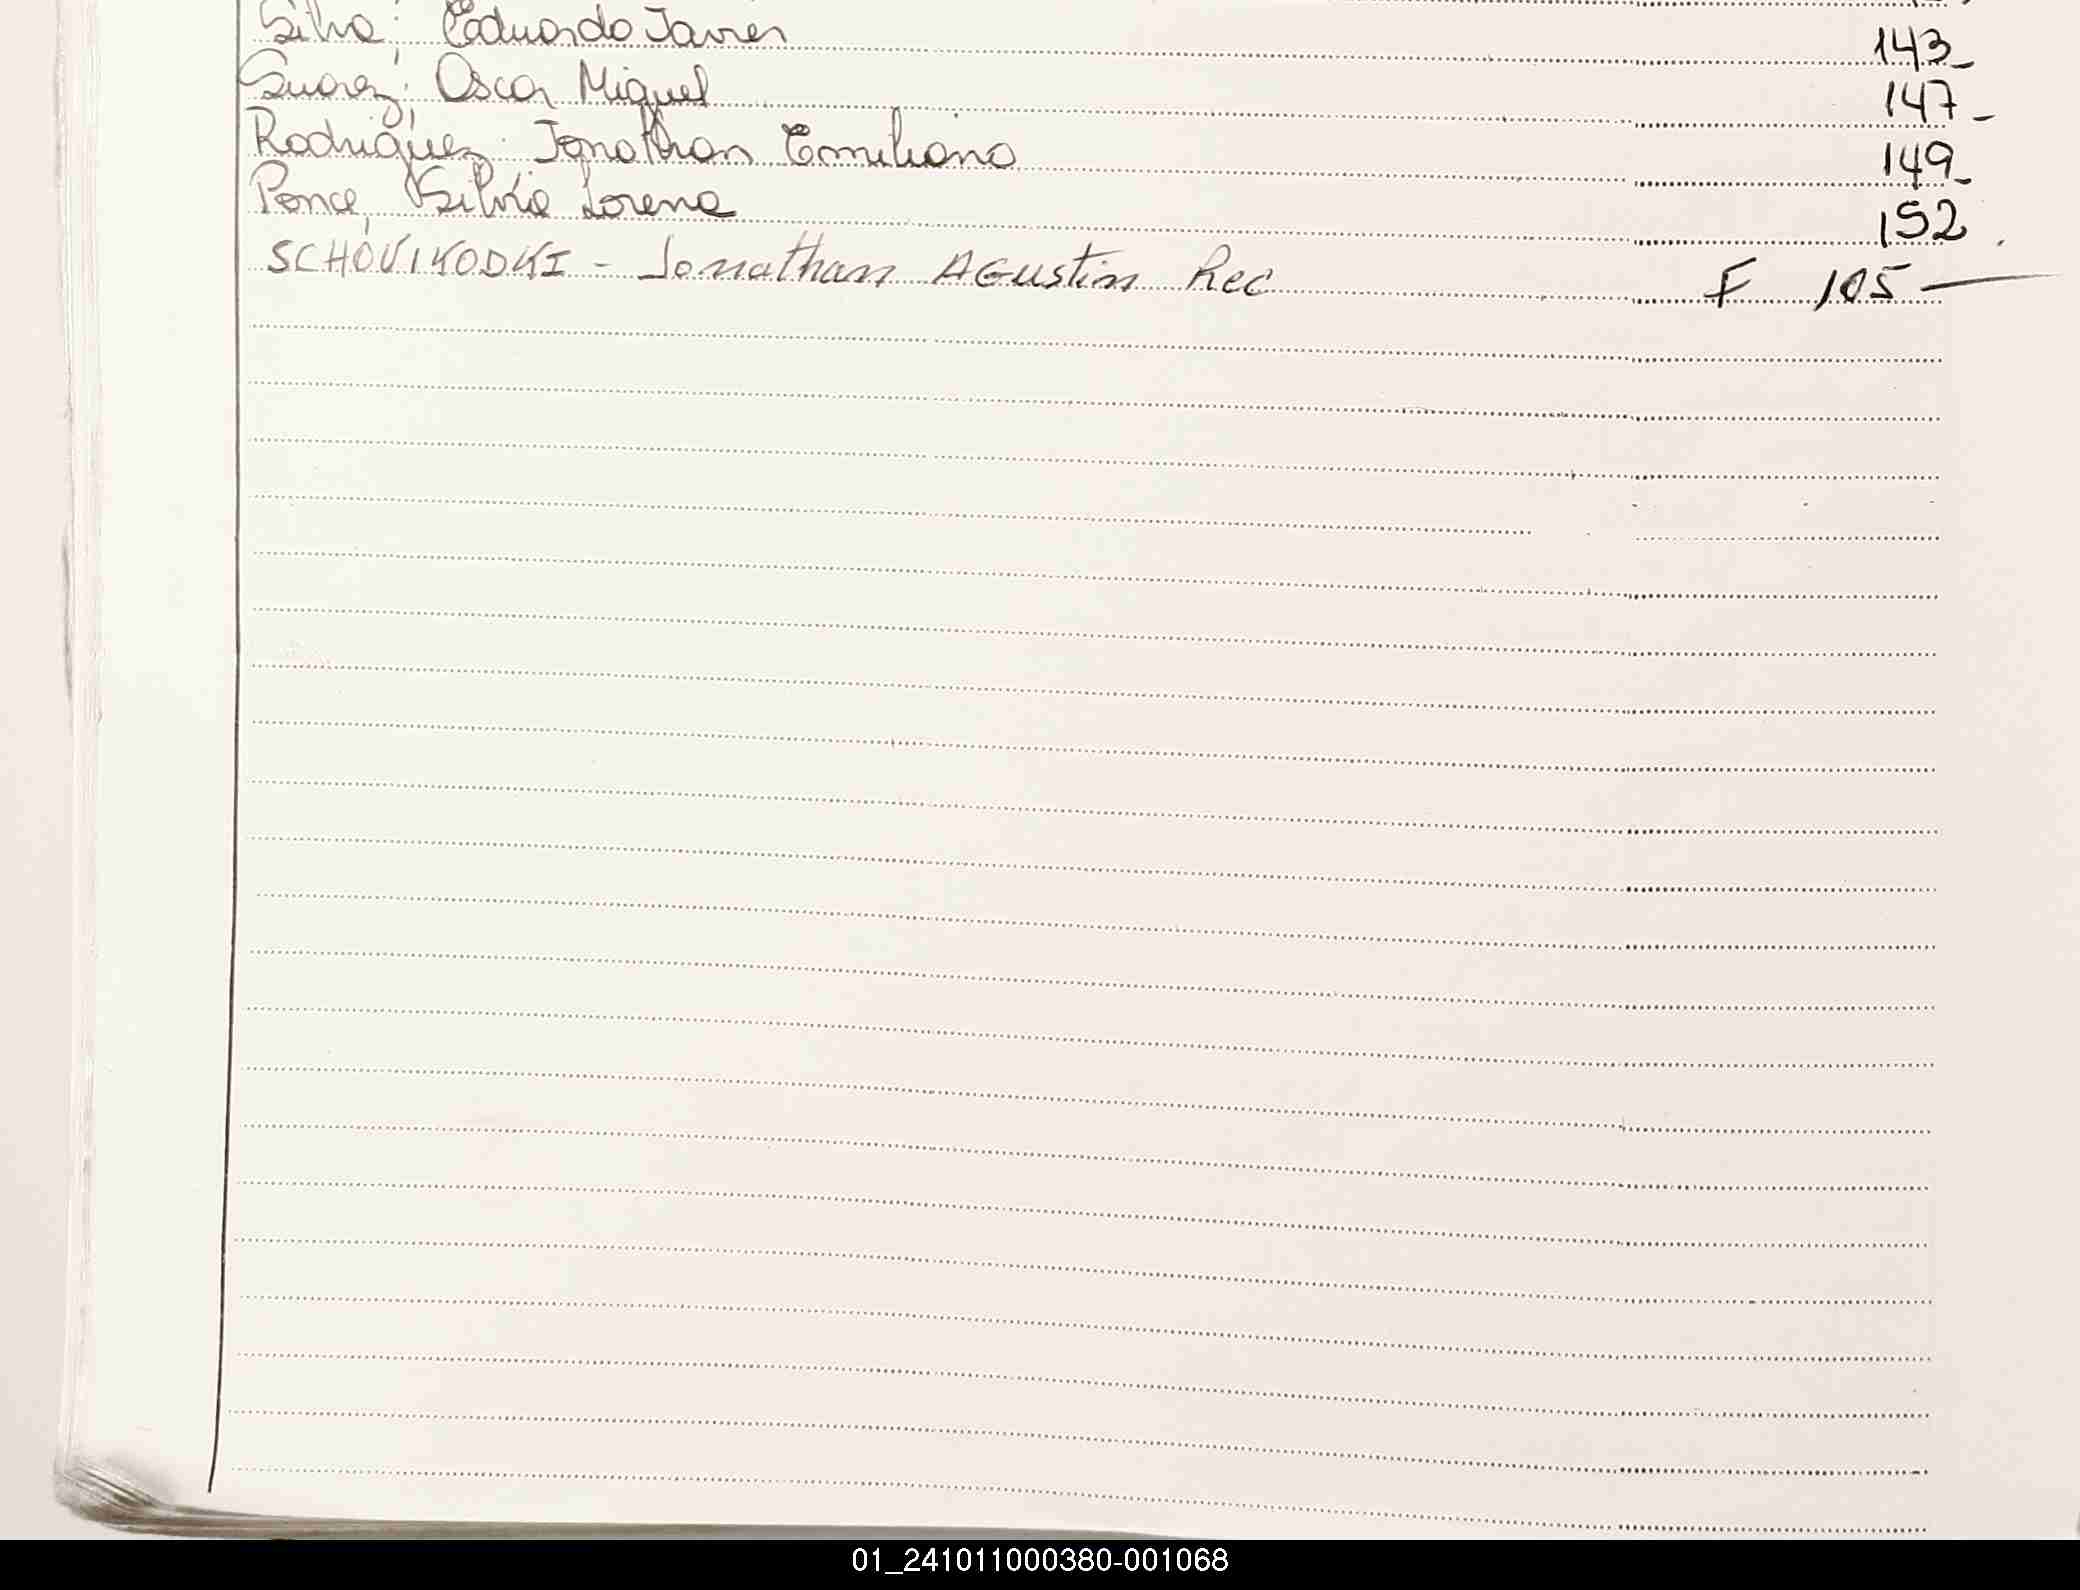 Silva, Eduardo Javier 143-
Suarez, Oscar Miguel 147-
Rodriguez, Jonathan Emiliano 149-
Ponce, Silvia Lorena 152.
SCHOVIKODKI - Jonathan AGustin Rec F 105 —
01_241011000380-001068